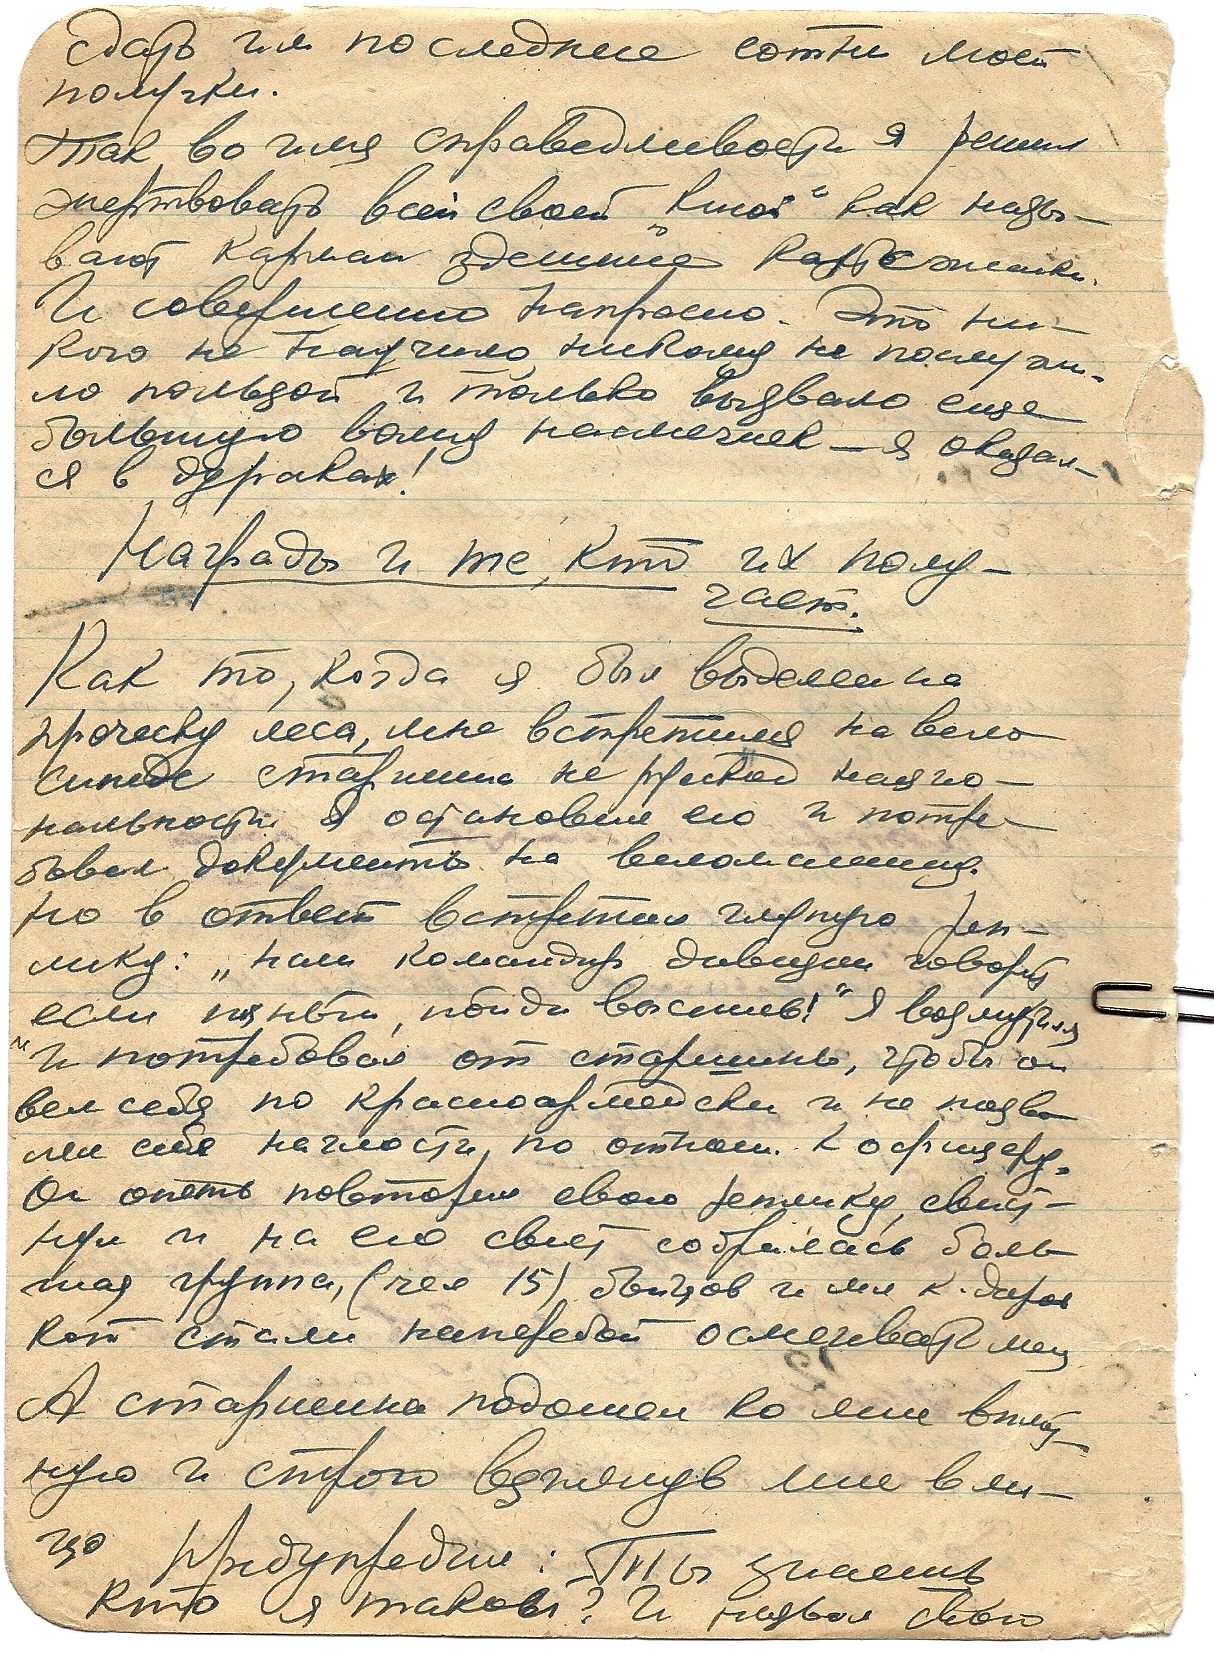 сдать им последние сотни моей
получки.
Так, во имя справедливости я решил
жертвовать всей своей „Кшой" как назы-
вают карман здешние
И совершенно напрасно. Это ни-
кого не научило, никому не послужи-
ло пользой и только вызвало еще
большую волну насмешек — я оказал-
ся в дураках!
Награды и те, кто их полу-
чает.
Как то, когда я был выделен на
проческу леса, мне встретился на вело
сипеде старшина не русской нацио-
нальности. Я остановил его и потре-
бовал документы на веломашину.
Но в ответ встретил глупую реп-
лику: „нам командир дивизии говорит
если нужны, пойди выспись!" Я возмутился
и потребовал от старшины, чтобы он
вел себя по красноармейски и не позво
лял себе наглости, по отнош. к офицеру.
Он опять повторил свою реплику, свист-
нул и на его свист собралась боль
шая группа, (чел 15) бойцов и мл к-диров
кот стали наперебой осмеивать меня
А старшина подошел ко мне вплот
ную и строго взглянув мне в ли-
цо предупредил: Ты знаешь
кто я таков? И назвал свою